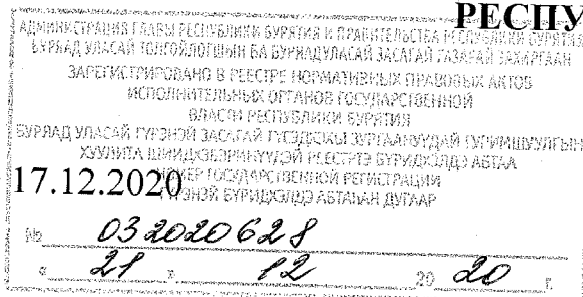 РЕСПУ
АДМИНИСТРАЦИЯ ГЛАВЫ РЕСПУБЛИКИ БУРЯТИЯ И ПРАВИТЕЛЬСТВА РЕСПУБЛИКИ БУРЯТИЯ
БУРЯАД УЛАСАЙ ТОЛГОЙЛОГШЫН БА БУРЯАД УЛАСАЙ ЗАСАГАЙ ГАЗАРАЙ ЗАХИРГААН
ЗАРЕГИСТРИРОВАНО В РЕЕСТРЕ НОРМАТИВНЫХ ПРАВОВЫХ АКТОВ
ИСПОЛНИТЕЛЬНЫХ ОРГАНОВ ГОСУДАРСТВЕННОЙ
ВЛАСТИ РЕСПУБЛИКИ БУРЯТИЯ
БУРЯАД УЛАСАЙ ГҮРЭНЭЙ ЗАСАГАЙ ГҮЙСЭДХЭХЫ ЗУРГААНУУДАЙ ГУРИМШУУЛГЫН
ХУУЛИТА ШИИДХЭБЭРИНҮҮДЭЙ РЕЕСТРТЭ БҮРИДХЭЛДЭ АБТАА
17.12.2020
НОМЕР ГОСУДАРСТВЕННОЙ РЕГИСТРАЦИИ
ГҮРЭНЭЙ БҮРИДХЭЛДЭ АБТАҺАН ДУГААР
№ 032020628
« 21 » 12 20 20 г.